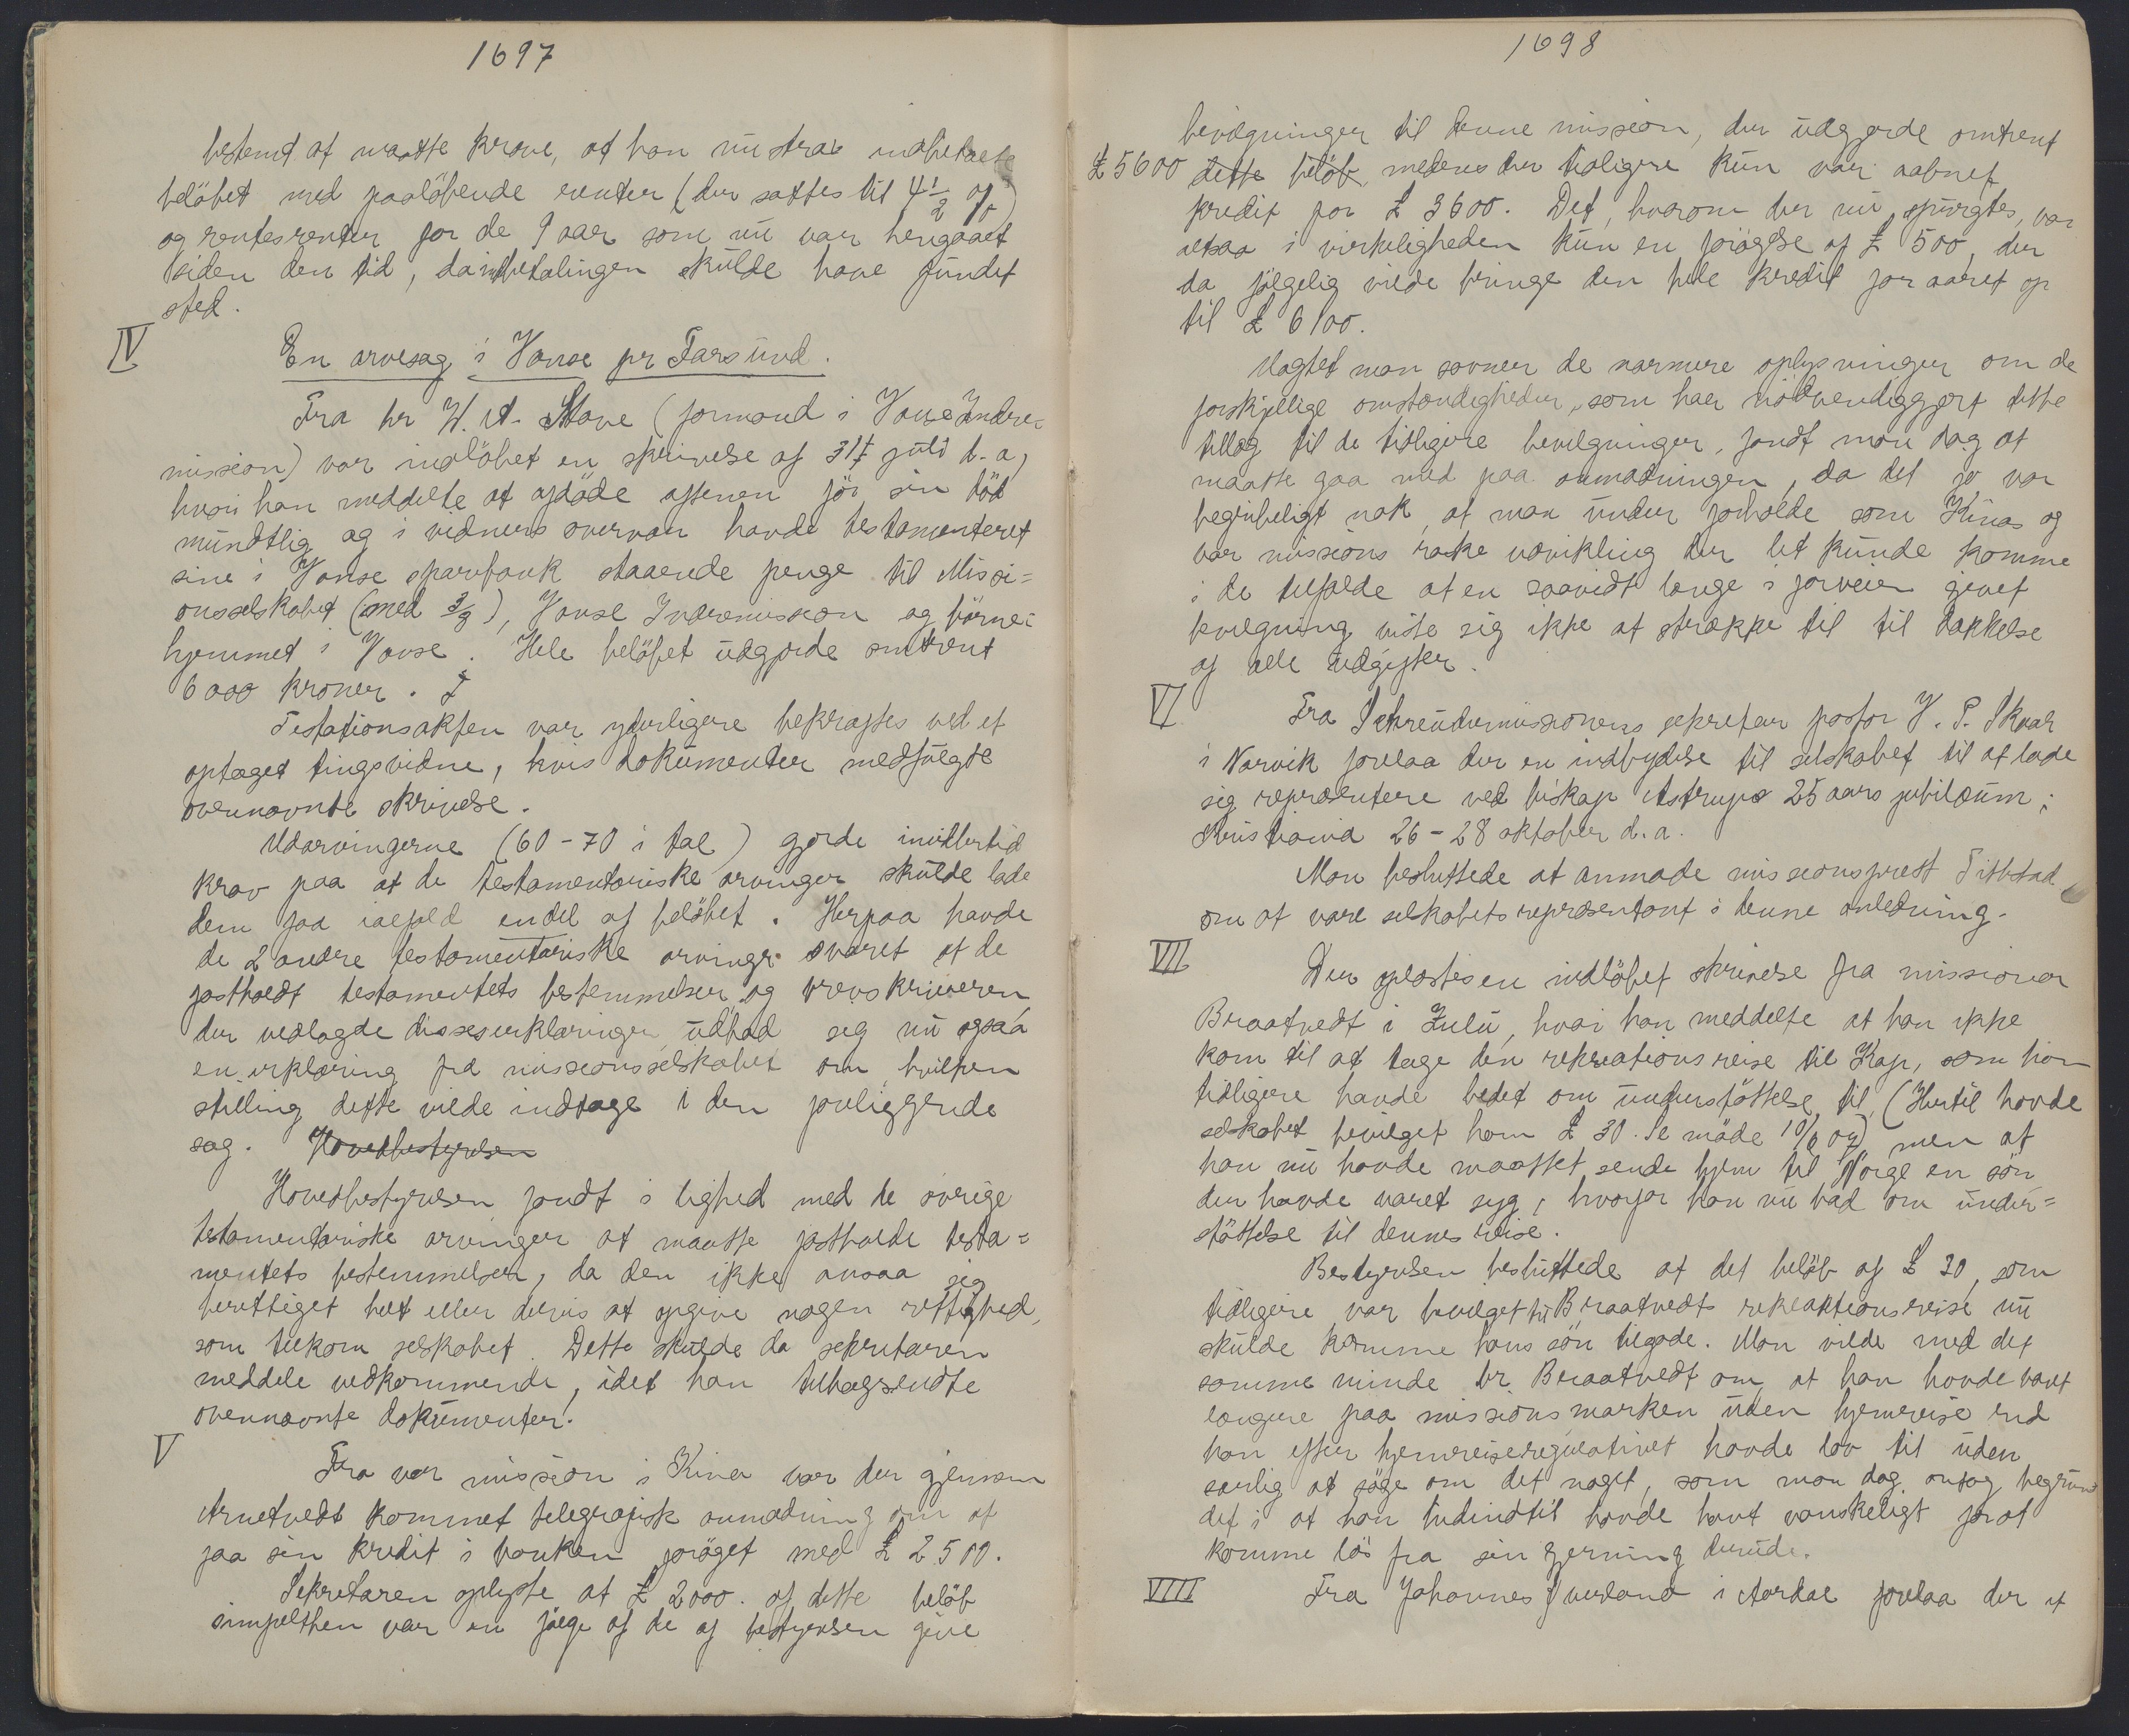 1697
bestemt at maatte kræve, at han nu strax indbetalte
beløbet med paaløbende renter (der sattes til 4 1/2 %)
og rentesrenter for de 9 aar som nu var hengaaet
siden den tid, da indbetalingen skulde have fundet
sted.
IV
En arvesag i Vanse pr Farsund.
Fra hr W. A. Stave (formand i Vanse Indre-
mission) var indløbet en skrivelse af 31t juli d. a,
hvori han meddelte at afdøde aftenen før sin død
mundtlig og i vidners overvær havde testamenteret
sine i Vanse sparebank staaende penge til Missi=
onsselskabet (med 3/9), Vanse Indremission og børne=
hjemmet i Vanse. Hele beløbet udgjorde omtrent
6000 kroner.
Testationsakten var yderligere bekræftet ved et
optaget tingsvidne, hvis dokumenter medfulgte
ovennævnte skrivelse.
Udarvingerne (60-70 i tal) gjorde imidlertid
krav paa at de testamentariske arvinger skulde lade
dem faa ialfald endel af beløbet. Herpaa havde
de 2 andre testamentariske arvinger svaret at de
fastholdt testamentets bestemmelser og brevskriveren
der vedlagde disses erklæringer udbad seg nu ogsaa
en erklæring fra missionsselskabet om hvilken
stilling dette vilde indtage i den foreliggende
sag. Hovedbestyrelsen
Hovedbestyrelsen fandt i lighed med de øvrige
testamentariske arvinger at maatte fastholde testa=
mentets bestemmelser, da den ikke ansaa sig
berettiget helt eller delvis at opgive nogen rettighed,
som tilkom selskabet. Dette skulde da sekretæren
meddele vedkommende, idet han tilbagesendte
ovennævnte dokumenter.
V
Fra vor mission i Kina var der gjennem
Arnetvedt kommet telegrafisk anmodning om at
faa sin kredit i banken forøget med £ 2500.
Sekretæren oplyste at £ 2000. af dette beløb
simpelthen var en følge af de af bestyrelsen give
1698
bevilgninger til denne mission, der udgjorde omtrent
£ 5600 dette beløb, medens der tidligere kun var aabnet
kredit for £ 3600. Det, hvorom der nu spurgtes, var
altsaa i virkeligheden kun en forøgelse af £ 500, der
da følgelig vilde bringe den hele kredit for aaret op
til £ 6100.
Uagtet man savner de nærmere oplysninger om de
forskjellige omstændigheder, som har nødvendiggjort dette
tillæg til de tidligere bevilgninger, fandt man dog at
maatte gaa med paa anmodningen, da det jo var
begribeligt nok, at man under forholde som Kinas og
vor missions raske udvikling der let kunde komme
i de tilfælde at en saavidt lange i forveien givet
bevilgning viste sig ikke at strække til til dækkelse
af alle udgifter.
VI
Fra Schreudermissionens sekretær pastor H. P. Skaar
i Narvik forelaa der en indbydelse til selskabet til at lade
sig repræsentere ved biskop Astrups 25 aars jubilæum i
Kristiania 26-28 oktober d. a.
Man besluttede at anmode missionsprest Titlestad
om at være selskabets repræsentant i denne anledning.
VII
Der oplæstes en indløbet skrivelse fra missionær
Braatvedt i Zulu, hvori han meddelte at han ikke
kom til at tage den rekreationsreise til Kap, som han
tidligere havde bedet om understøttelse til, (Hertil havde
selskabet bevilget ham £ 30. Se møde 10/6 07) men at
han nu havde maattet sende hjem til Norge en søn
der havde været syg, hvorfor han nu bad om under=
støttelse til dennes reise.
Bestyrelsen besluttede at det beløb af £ 30, som
tidligere var bevilget til Braatvedts rekreationsreise nu
skulde komme hans søn tilgode. Man vilde med det
samme minde br. Braatvedt om, at han havde været
længere paa missionsmarken uden hjemreise end
han efter hjemreiseregulativet havde lov til uden
særlig at søge om det noget, som man dog antog begrun
det i at han hidindtil havde havt vanskeligt for at
komme løs fra sin gjerning derude.
VIII
Fra Johannes Sverland i Aardal forelaa der et